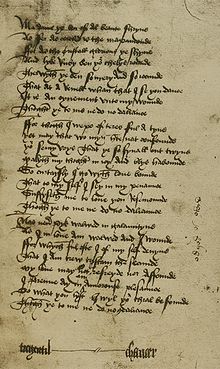 Madame ye ben of al beaute shryne
As fer as cercled is the mapamonde
For as the cristall glorious ye shyne
And lyke Ruby ben your chekys rounde
Therwyth ye ben so mery and so iocunde
That at a Reuell whan that I se you dance
It is an oynement vnto my wounde
Thoght ye to me ne do no daliance
For thogh I wepe of teres ful a tyne
Yet may that wo myn herte nat confounde
Your semy voys that ye so small out twyne
Makyth my thoght in ioy and blys habounde
So curtaysly I go wyth loue bounde
That to my self I sey in my penaunce
Suffyseth me to loue you Rosemounde
Thogh ye to me ne do no daliaunce
Nas neuer pyk walwed in galauntyne
As I in loue am walwed and I wounde
For whych ful ofte I of my self deuyne
That I am trew tristam the secunde
My loue may not refreyde nor affounde
I brenne ay in an amorouse plesaunce
Do what you lyst I wyl your thral be founde
Thogh ye to me ne do no daliance
tregentil chaucer